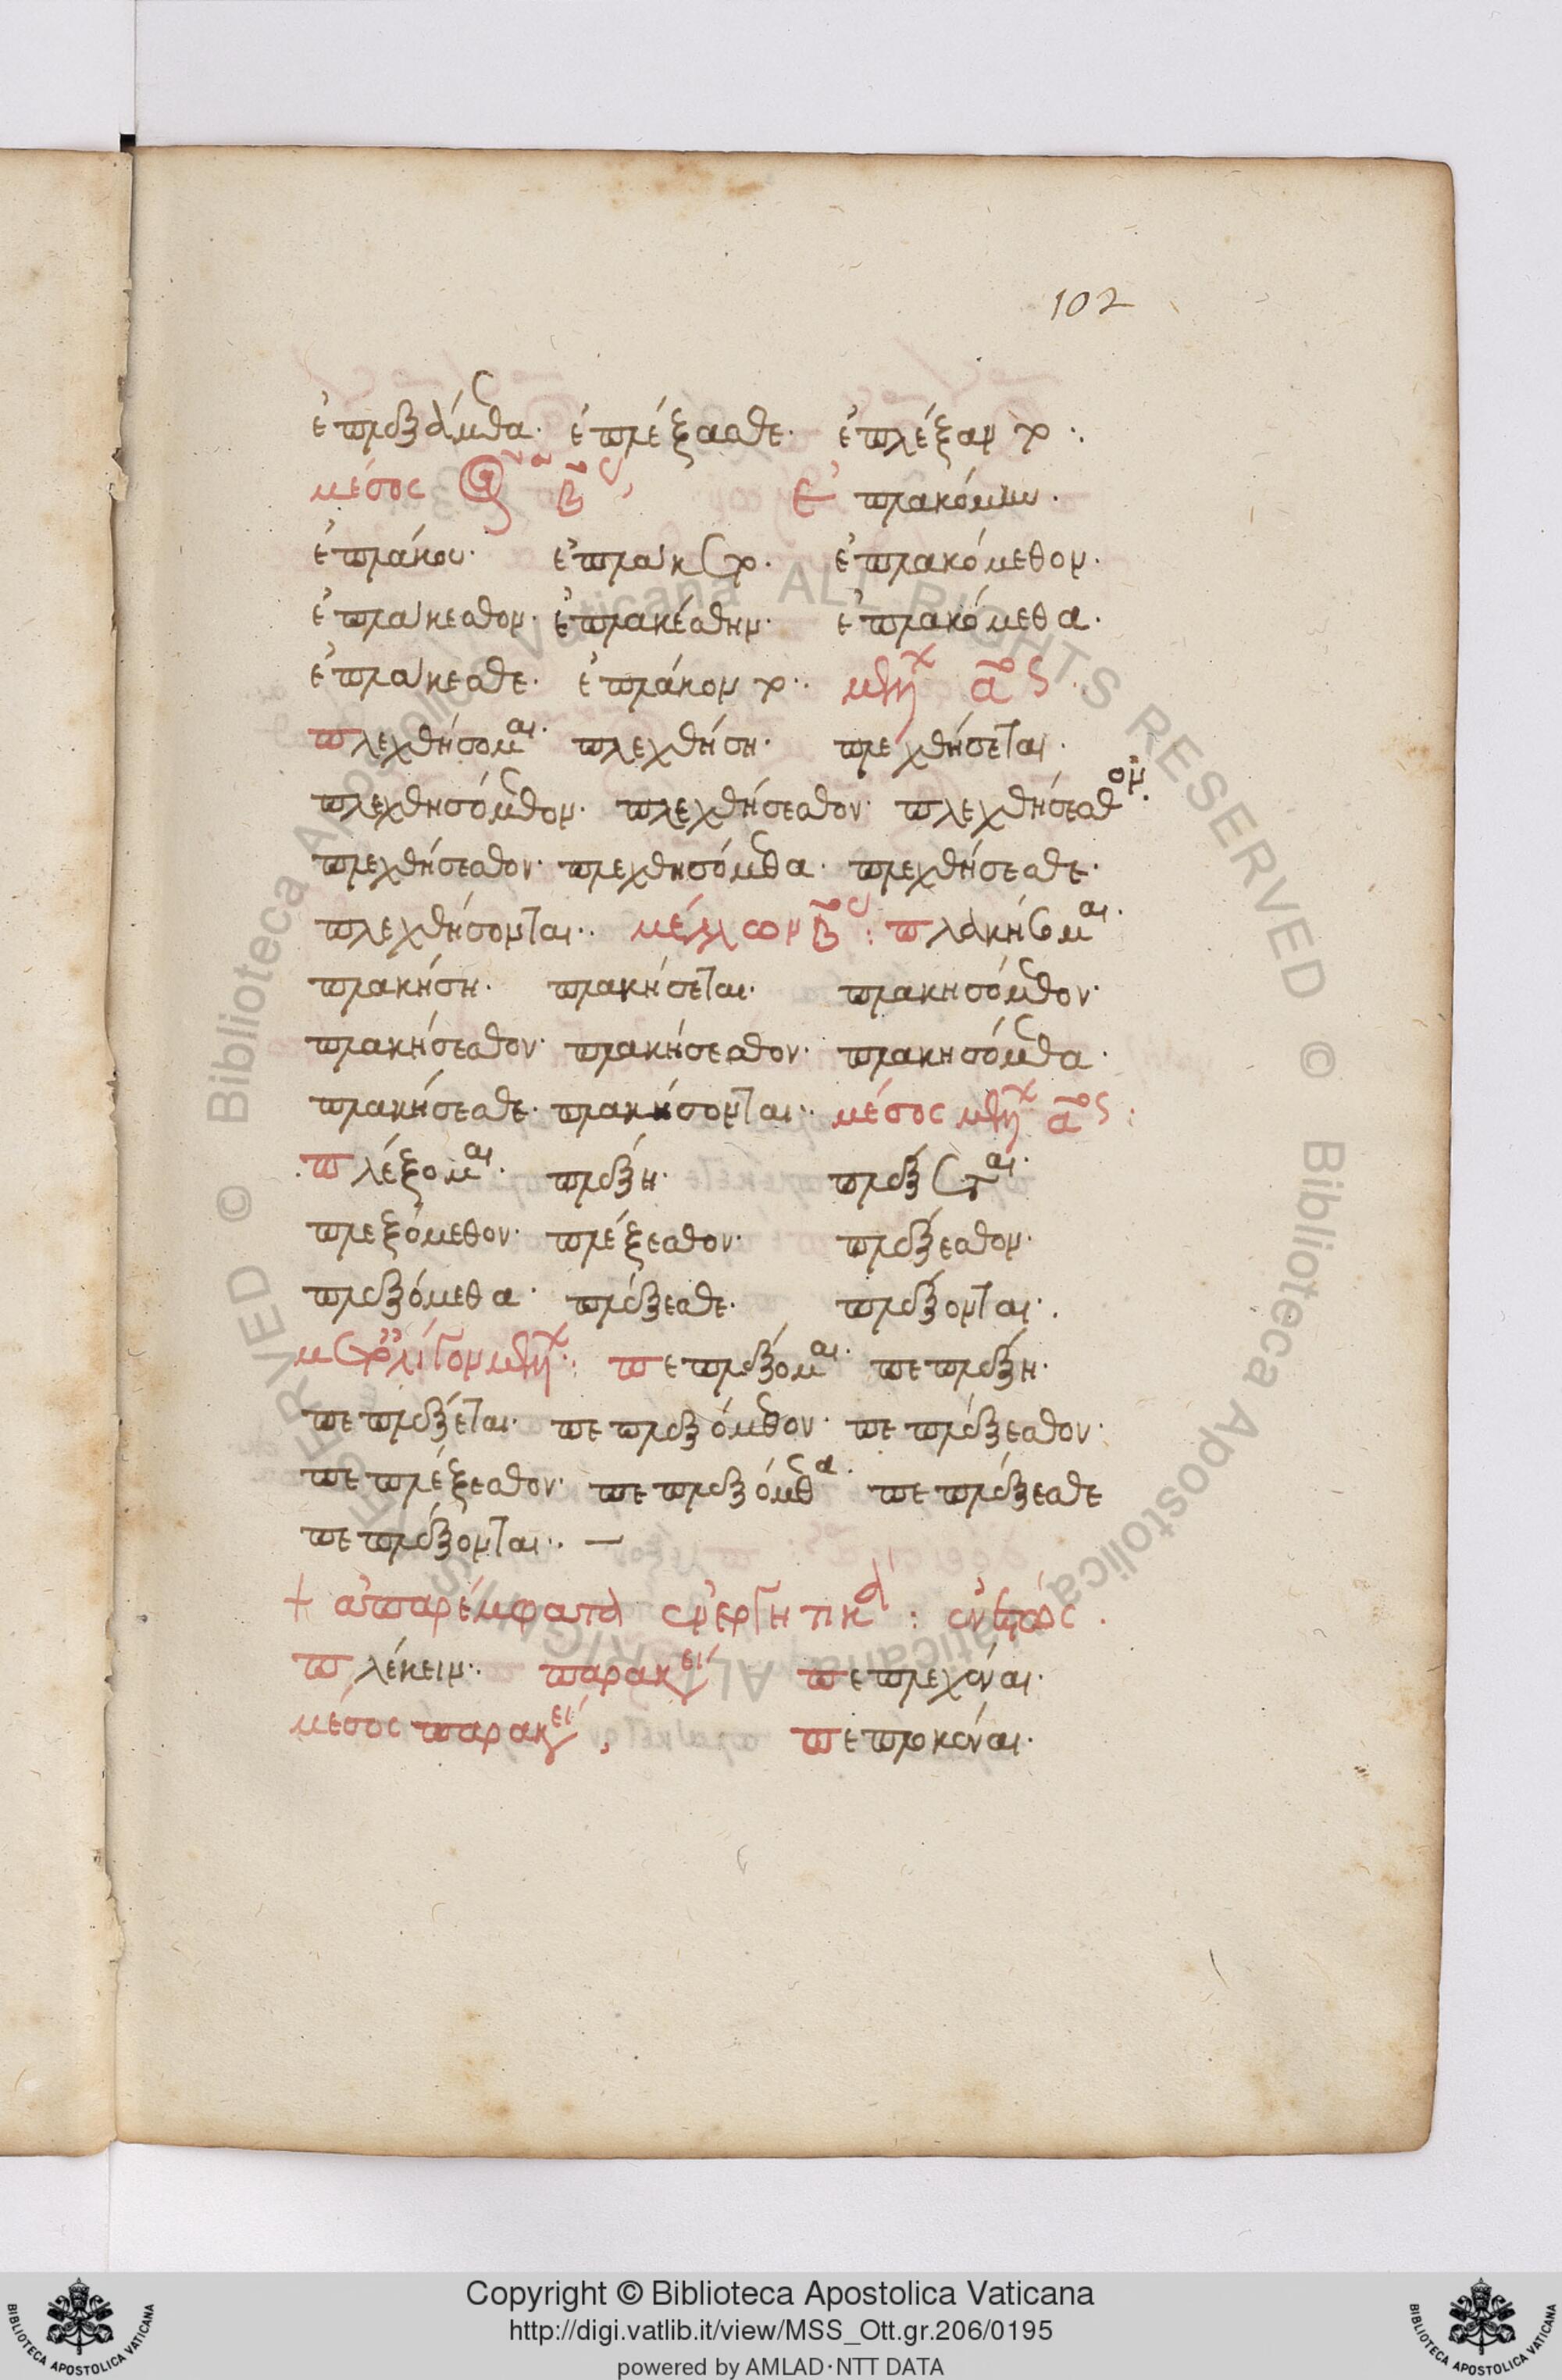 102
ἐπλεξάμεθα· ἐπλέξασθε· ἐπλέξαντο··
μέσος ἀόριστος β ος, ἐπλακόμην·
ἐπλάκου· ἐπλάκετο· ἐπλακόμεθον·
ἐπλάκεσθον· ἐπλακέσθην· ἐπλακόμεθα·
ἐπλάκεσθε· ἐπλάκοντο·· μέλλων α ος
πλεχθήσομαι· πλεχθήση· πλεχθήσεται·
πλεχθησόμεθον· πλεχθήσεσθον· πλεχθήσεσθον·
πλεχθήσεσθον· πλεχθησόμεθα· πλεχθήσεσθε·
πλεχθήσονται·· μέλλων β ος: πλακήσομαι·
πλακήση· πλακήσεται· πλακησόμεθον·
πλακήσεσθον· πλακήσεσθον· πλακησόμεθα·
πλακήσεσθε· πλακήσονται·· μέσος μέλλων α ος:
πλέξομαι· πλέξη· πλέξεται·
πλεξόμεθον· πλέξεσθον· πλέξεσθον·
πλεξόμεθα· πλέξεσθε· πλέξονται·
μετ' ὀλίγον μέλλων: πεπλέξομαι· πεπλέξη·
πεπλέξεται· πεπλεξόμεθον· πεπλέξεσθον·
πεπλέξεσθον· πεπλεξόμεθα· πεπλέξεσθε
πεπλέξονται·· —
+ ἀπαρέμφατα ἐνεργητικά: ἐνεστώς·
πλέκειν·· παρακεί πεπλεχέναι·
μέσος παρακεί, πεπλοκέναι·
Copyright © Biblioteca Apostolica Vaticana
http://digi.vatlib.it/view/MSS_Ott.gr.206/0195
powered by AMLAD·NTT DATA
BIBLIOTECA APOSTOLICA VATICANA
BIBLIOTECA APOSTOLICA VATICANA